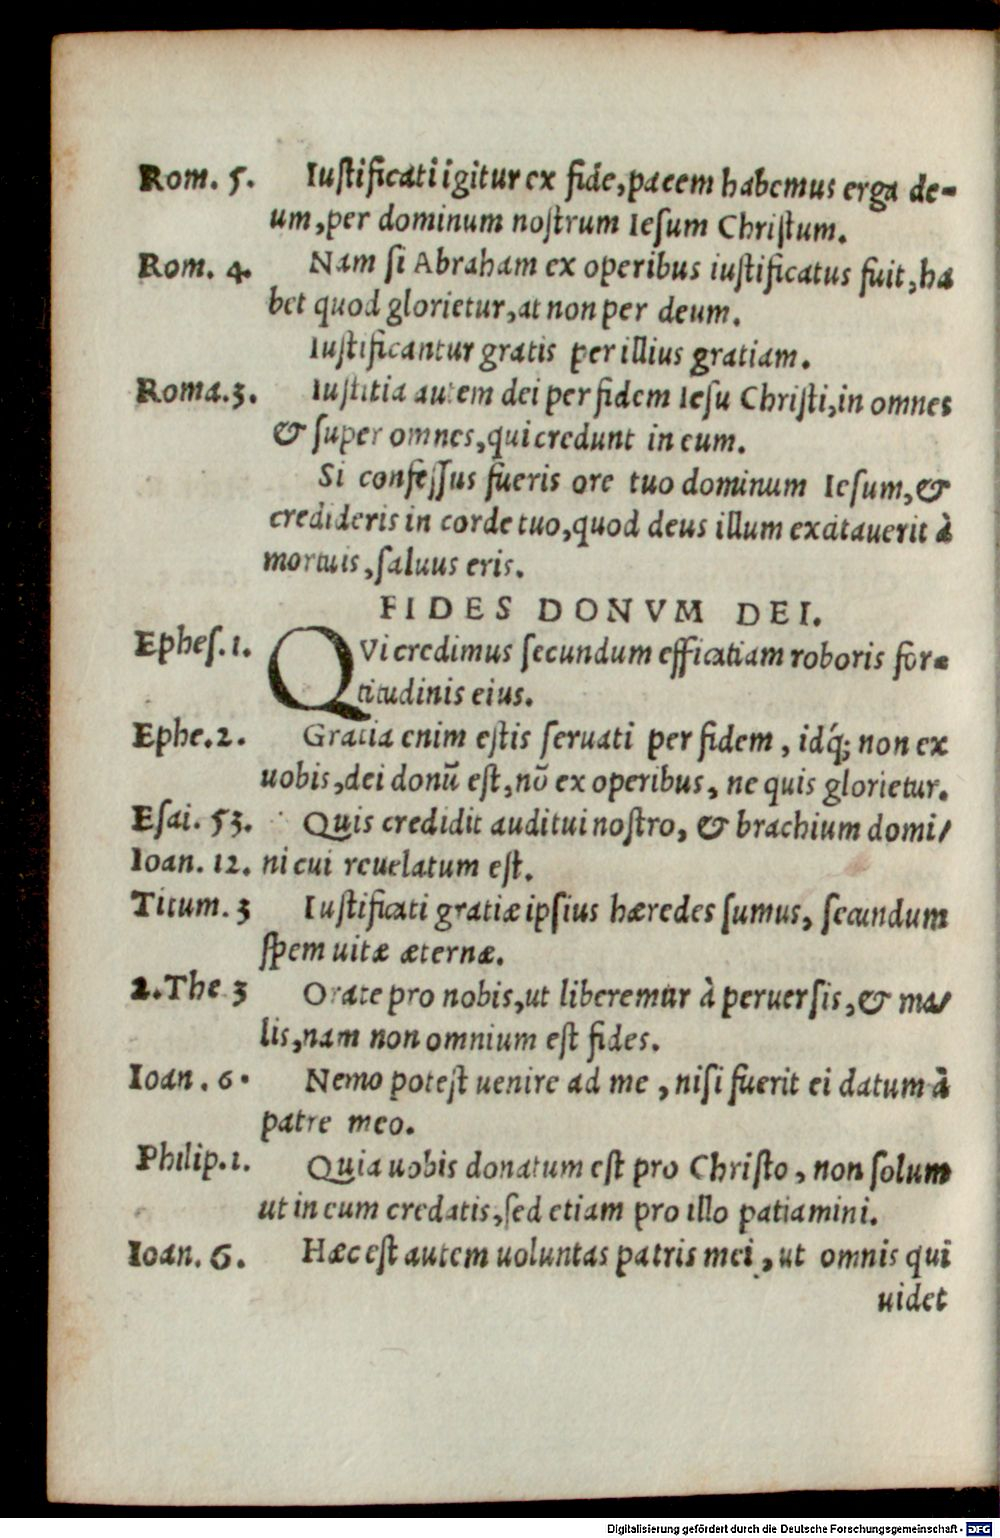 Rom. 5. Iustificati igitur ex fide, pacem habemus erga de-
um, per dominum nostrum Iesum Christum.
Rom. 4. Nam si Abraham ex operibus iustificatus fuit, ha
bet quod glorietur, at non per deum.
Iustificantur gratis per illius gratiam.
Roma.3. Iustitia autem dei per fidem Iesu Christi, in omnes
& super omnes, qui credunt in eum.
Si confessus fueris ore tuo dominum Iesum, &
credideris in corde tuo, quod deus illum excitauerit à
mortuis, saluus eris.
FIDES DONVM DEI.
Ephes. 1. QVi credimus secundum efficatiam roboris for-
titudinis eius.
Ephe. 2. Gratia enim estis seruati per fidem, idq́; non ex
uobis, dei donū est, nō ex operibus, ne quis glorietur.
Esai. 53. Quis credidit auditui nostro, & brachium domi/
Ioan. 12. ni cui reuelatum est.
Titum. 3 Iustificati gratiæ ipsius hæredes sumus, secundum
spem uitæ æternæ.
2. The 3 Orate pro nobis, ut liberemur à peruersis, & ma/
lis, nam non omnium est fides.
Ioan. 6. Nemo potest uenire ad me, nisi fuerit ei datum à
patre meo.
Philip. 1. Quia uobis donatum est pro Christo, non solum
ut in eum credatis, sed etiam pro illo patiamini.
Ioan. 6. Hæc est autem uoluntas patris mei, ut omnis qui
uidet
Digitalisierung gefördert durch die Deutsche Forschungsgemeinschaft - DFG